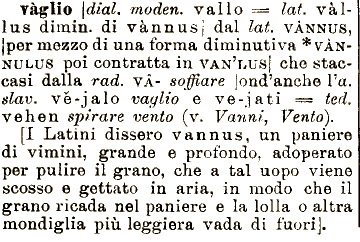 vàglio |dial. moden. vallo = lat. vàl-
lus dimin. di vànnus| dal lat. VÀNNUS,
|per mezzo di una forma diminutiva *VÀN-
NULUS poi contratta in VAN'LUS| che stac-
casi dalla rad. VÂ- soffiare |ond'anche l'a.
slav. vĕ-jalo vaglio e ve-jati = ted.
vehen spirare vento (v. Vanni, Vento).
[I Latini dissero vannus, un paniere
di vimini, grande e profondo, adoperato
per pulire il grano, che a tal uopo viene
scosso e gettato in aria, in modo che il
grano ricada nel paniere e la lolla o altra
mondiglia più leggiera vada di fuori].